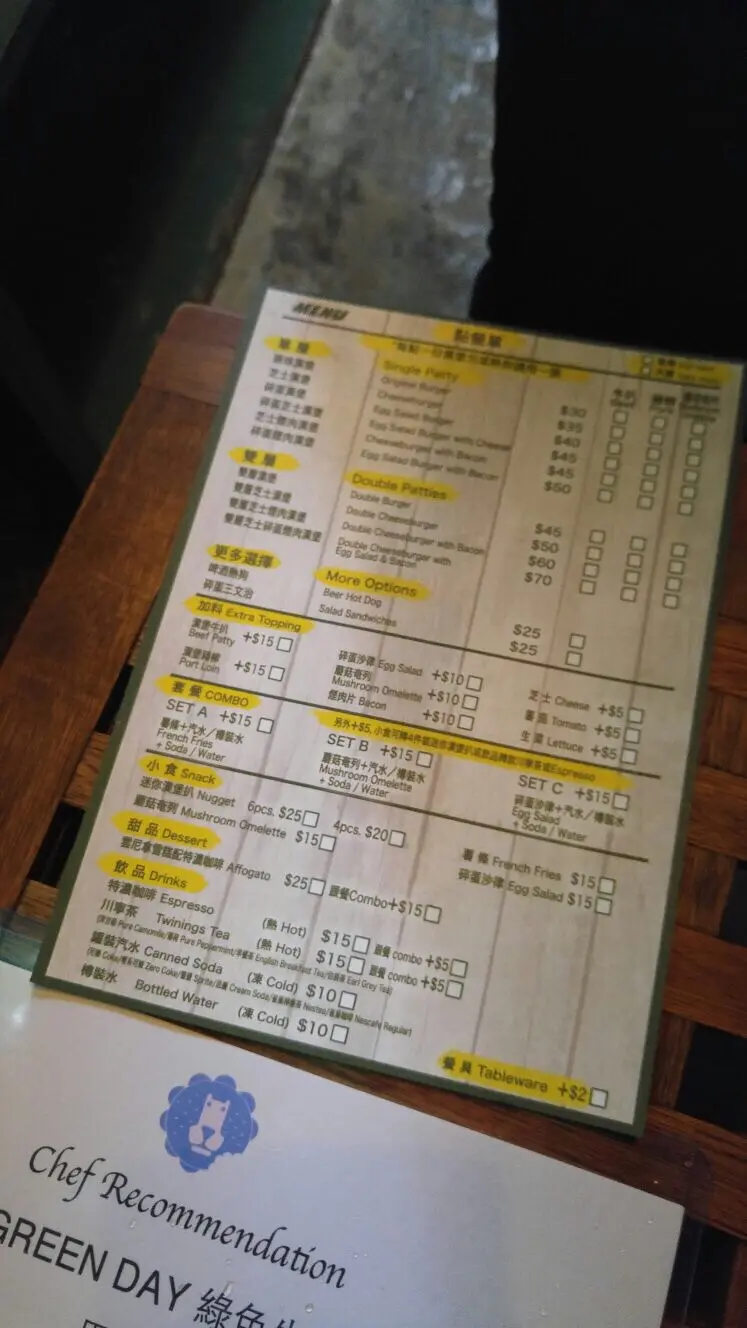 MENU
點餐單
單層 Single Patty
原味漢堡 Original Burger $30
芝士漢堡 Cheeseburger $35
碎蛋漢堡 Egg Salad Burger $40
碎蛋芝士漢堡 Egg Salad Burger with Cheese $45
芝士煙肉漢堡 Cheeseburger with Bacon $45
碎蛋煙肉漢堡 Egg Salad Burger with Bacon $50
雙層 Double Patties
雙層漢堡 Double Burger $45
雙層芝士漢堡 Double Cheeseburger $50
雙層芝士煙肉漢堡 Double Cheeseburger with Bacon $60
雙層芝士碎蛋煙肉漢堡 Double Cheeseburger with Egg Salad & Bacon $70
更多選擇 More Options
啤酒熱狗 Beer Hot Dog $25
碎蛋三文治 Salad Sandwiches $25
加料 Extra Topping
漢堡牛扒 Beef Patty +$15
碎蛋沙律 Egg Salad +$10
芝士 Cheese +$5
Port Loin +$15
蘑菇奄列 Mushroom Omelette +$10
蕃茄 Tomato +$5
煙肉片 Bacon +$10
生菜 Lettuce +$5
套餐 COMBO
SET A +$15
薯條+汽水/樽裝水
French Fries
+ Soda / Water
SET B +$15
蘑菇奄列+汽水/樽裝水
Mushroom Omelette
+ Soda / Water
SET C +$15
碎蛋沙律+汽水/樽裝水
Egg Salad
+ Soda / Water
小食 Snack
迷你漢堡扒 Nugget 6pcs. $25 4pcs. $20 薯條 French Fries $15
蘑菇奄列 Mushroom Omelette $15 碎蛋沙律 Egg Salad $15
甜品 Dessert
雲尼拿雪糕配特濃咖啡 Affogato $25 跟餐Combo+$15
飲品 Drinks
特濃咖啡 Espresso (熱 Hot) $15 跟餐 combo +$5
川寧茶 Twinings Tea (熱 Hot) $15 跟餐 combo +$5
罐裝汽水 Canned Soda (凍 Cold) $10
樽裝水 Bottled Water (凍 Cold) $10
餐具 Tableware +$2
Chef Recommendation
GREEN DAY 綠色